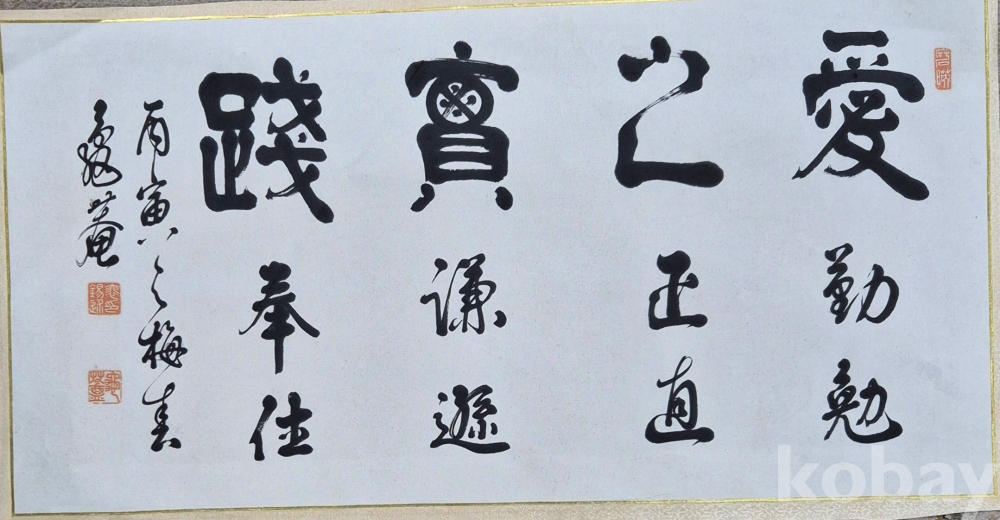 愛之實踐
勤勉
正直
謙遜
奉仕
丙寅之梅春
菴
kobay